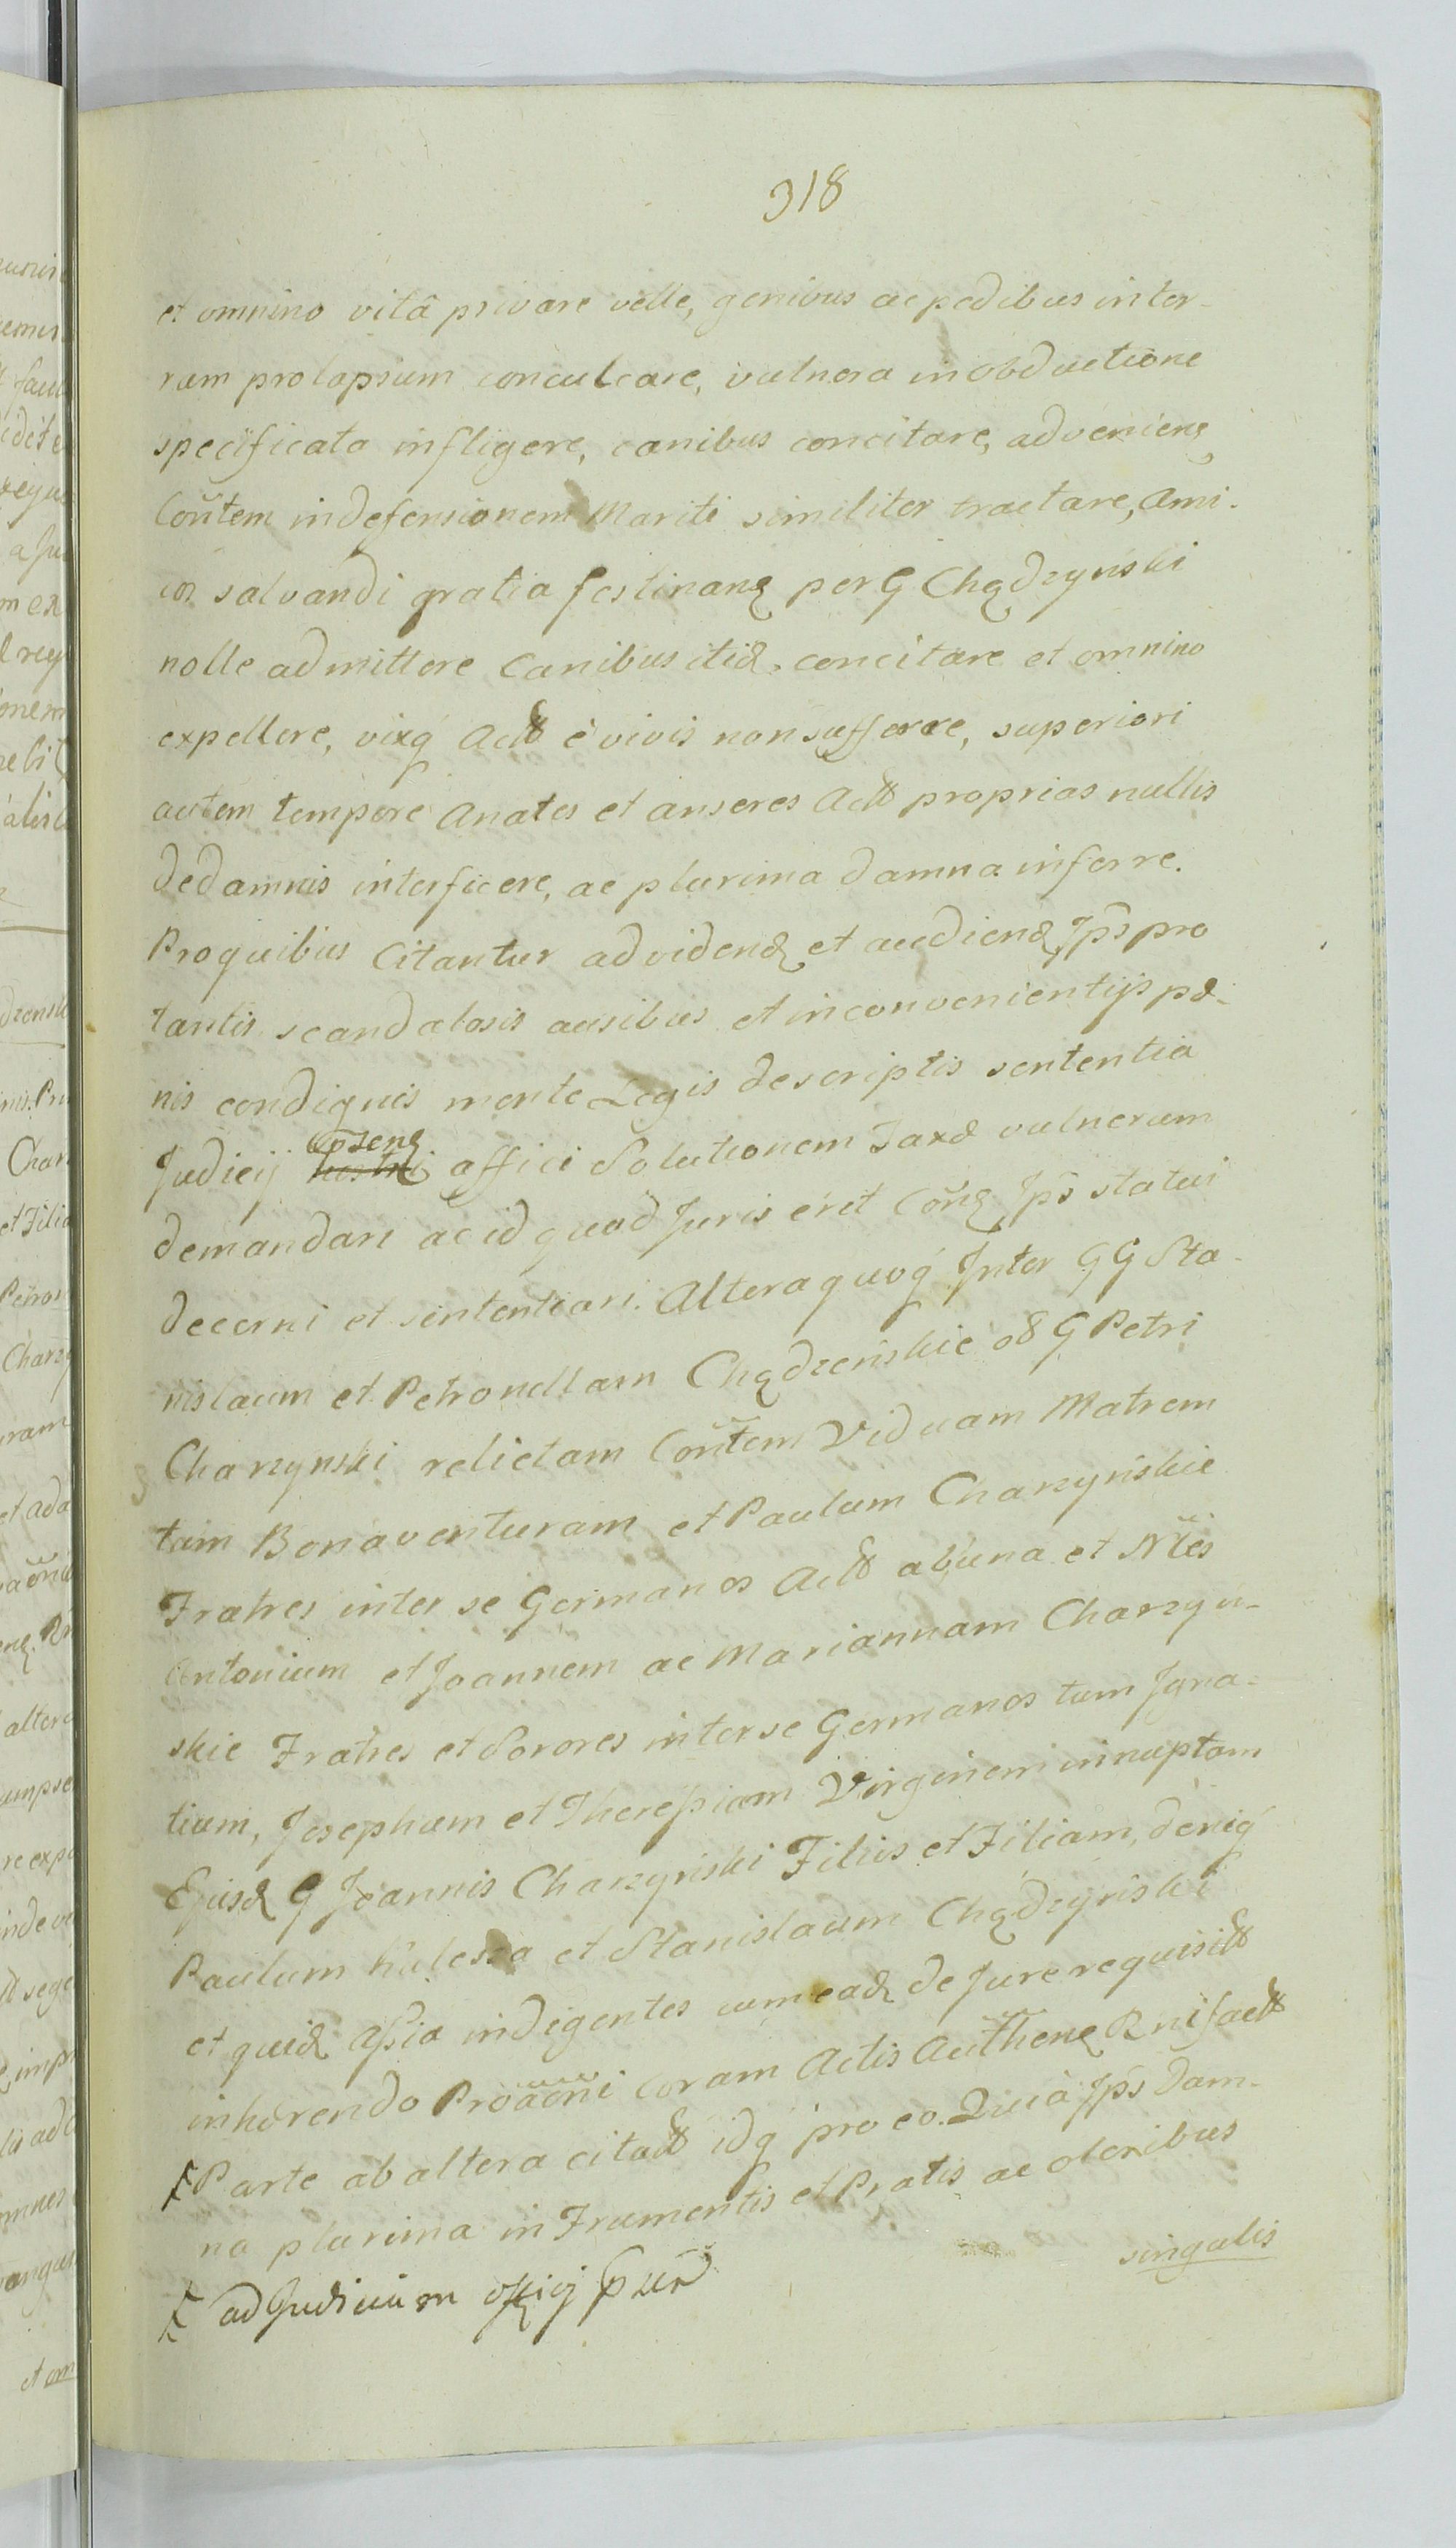 318
et omnino vitâ privare velle, genibus ac pedibus in ter-
ram prolapsum conculcare, vulnera in obductione
specificata infligere, canibus concitare, advenieng
Cořtem in defensionem Mariti similiter tractare, Ami-
cos salvandi gratia festinang per G Chądzyński
nolle admittere Canibus itid. concitare et omnino
expellere, vixq Act e vivis non sufferre, superiori
autem tempore Anates et anseres Act proprias nullis
de damnis interficere, ac plurima damna inferre.
Pro quibus Citantur ad vidend et audiend Jps pro
tantis scandalosis ausibus et inconvenientijs pæ-
nis condignis mente Legis descriptis sententia
Judicij pseng affici Solutionem Taxæ vulnerum
demandari ac id quod Juris erit Cong Jps statui
decerni et sententiari. Altera quoq Inter GG Sta-
nislaum et Petronellam Chądzeńskie o8 G Petri
Charzynski relictam Cořtem Viduam Matrem
tum Bonaventuram et Paulum Charzyńskie
Fratres inter se Germanos Act ab una et Nles
Antonium et Joannem ac Mariannam Charzyń-
skie Fratres et Sorores inter se Germanos tum Igna-
tium, Josephum et Therefsiam Virginem innuptam
Ejusd G Joannis Charzyński Filios et Filiam, deniq
Paulum Kulesza et Stanislaum Chądzyński
et quid Afsia indigentes cum ead de Jure requisit
inhærendo Proaoni coram Actis Autheng Rni fact
Parte ab altera citatt idq pro eo. Quia Jps Dam-
na plurima in Frumentis et Pratis ac oleribus
singulis
ad Judicium offcij